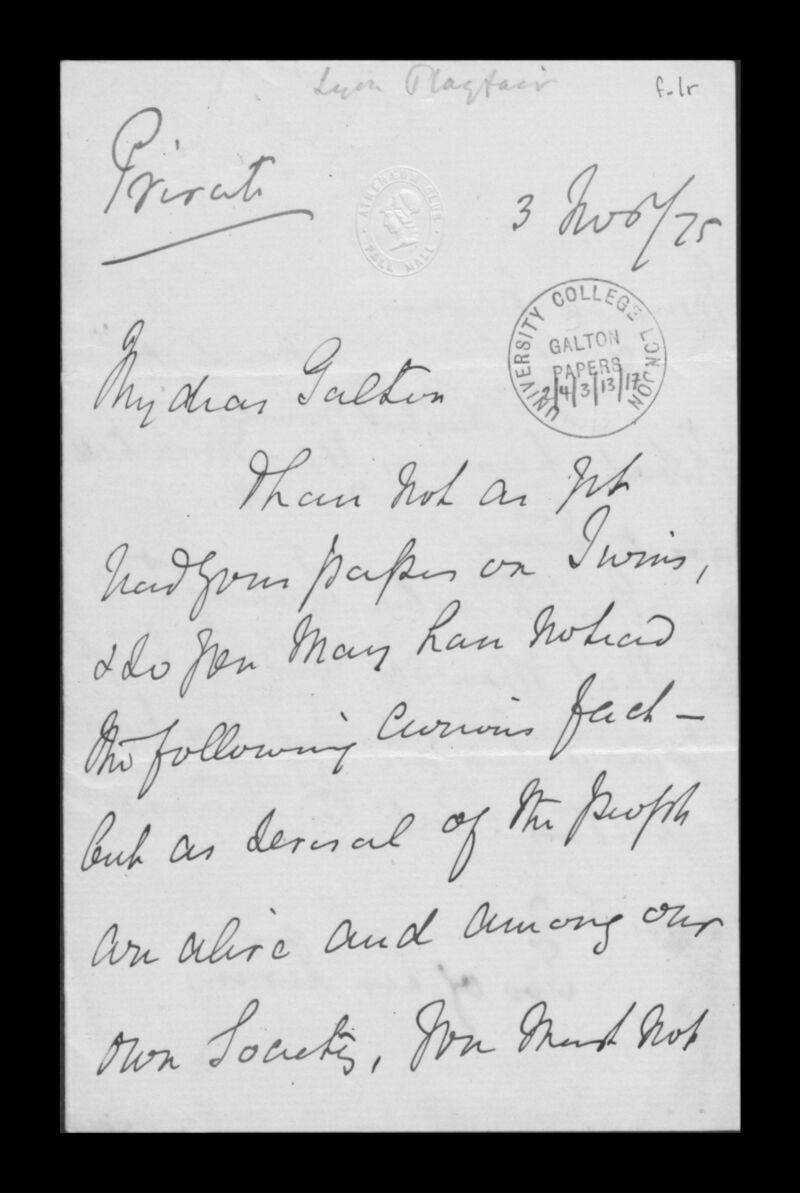 Lyon Playfair
f.1r
Private
ATHENAEUM CLUB
PALL MALL
3 Nov/75
UNIVERSITY COLLEGE LONDON
GALTON
PAPERS
2/4/3/13/17
My dear Galton
I have not as yet
read your paper on Twins,
& so you may have noticed
the following curious fact –
but as several of the people
are alive and among our
own Society, you must not